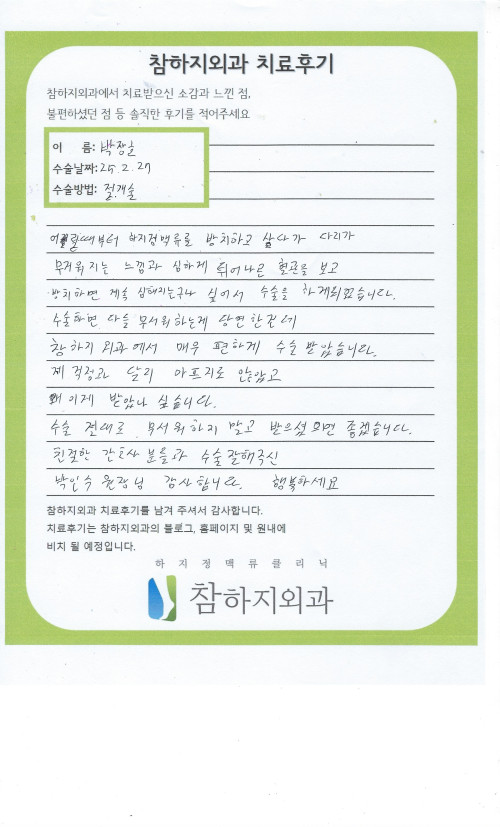 참하지외과 치료후기
참하지외과에서 치료받으신 소감과 느낀 점,
불편하셨던 점 등 솔직한 후기를 적어주세요
이 름: 박장호
수술날짜: 25.2.27
수술방법: 절개술
어릴때부터 하지정맥류를 방치하고 살다가 다리가
무거워지는 느낌과 심하게 튀어나온 혈관을 보고
방치하면 계속 심해지는구나 싶어서 수술을 하게되었습니다.
수술하면 다들 무서워하는게 당연한건데
참하지외과에서 매우 편하게 수술 받았습니다.
제 걱정과 달리 아프지도 않았고
왜 이제 받았나 싶습니다.
수술 절대로 무서워하지 말고 받으셨으면 좋겠습니다.
친절한 간호사 분들과 수술 잘해주신
박인수 원장님 감사합니다. 행복하세요
참하지외과 치료후기를 남겨 주셔서 감사합니다.
치료후기는 참하지외과의 블로그, 홈페이지 및 원내에
비치 될 예정입니다.
하지정맥류클리닉
참하지외과